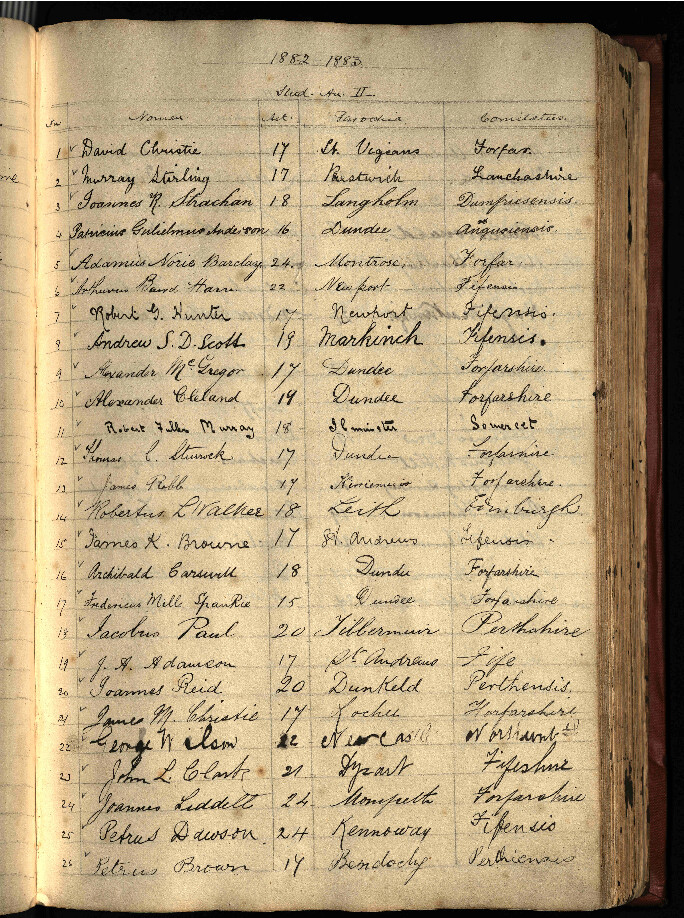 1882 1883
Stud. An. II
No Nomen Aet. Parochia Comitatus.
1 David Christie 17 St. Vigeans Forfar.
2 Murray Stirling 17 Prestwich Lancashire
3 Joannes R. Strachan 18 Langholm Dumfriesensis
4 Patricius Gulielmus Anderson 16 Dundee Angusiensis
5 Adamus Norie Barclay 24. Montrose, Forfar
6 Arthurus Baird Hann 22 Newport Fifensis
7 Robert G. Hunter 17 Newport Fifensis.
8 Andrew S. D. Scott 19 Markinch Fifensis.
9 Alexander McGregor 17 Dundee Forfarshire.
10 Alexander Cleland 19 Dundee Forfarshire
11 Robert Fuller Murray 18 Ilminster Somerset
12 Thomas C. Sturrock 17 Dundee Forfarshire.
13 James Robb 17 Kirriemuir Forfarshire.
14 Robertus L Walker 18 Leith Edinburgh
15 James K. Browne 17 St. Andrews Fifensis.
16 Archibald Carswell 18 Dundee Forfarshire
17 Fredericus Mills Spankie 15 Dundee Forfarshire
18 Jacobus Paul 20 Tibbermuir Perthshire
19 J. A. Adamson 17 St Andrews Fife
20 Joannes Reid 20 Dunkeld Perthensis.
21 James M. Christie 17 Forfarshire
22 George Wilson 22 Newcastle
23 John L. Clark 21 Dysart Fifeshire
24 Joannes Liddell 24. Monifieth Forfarshire
25 Petrus Dawson. 24 Kennoway Fifensis
26 Petrus Brown 17 Bendochy Perthensis